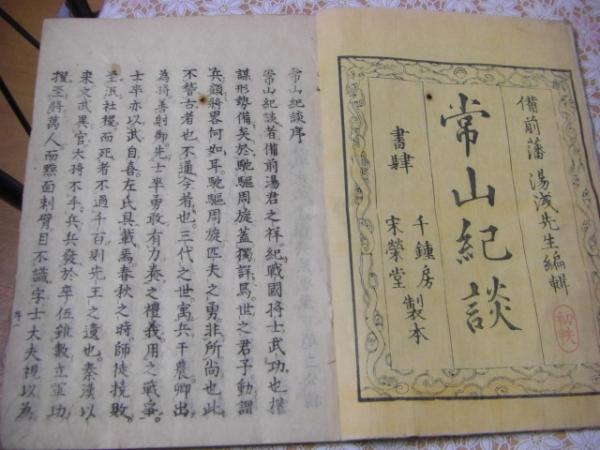 備前藩 湯浅先生編輯
常山紀談
書肆
千鍾房
宋榮堂
製本
初帙
常山紀談序
常山紀談者備前湯君之祥紀戰國将士武功也權
謀形勢備矣於馳驅周旋蓋獨詳焉世之君子動謂
兵顧將畧何如耳馳驅周旋匹夫之勇非所尚也此
不替古者也不通今者也三代之世寓兵于農卿出
為將善射御士卒勇敢有力奏之禮義用之戰爭
士卒亦以武自喜左氏具載焉春秋之時師徒撓敗
至泯社稷而死者不過千百則先王之遺也秦漢以
来文武異官大将不手兵兵發於卒伍雖數立軍功
擢至將萬人而黥面刺臂目不識字士大夫視以為
序一